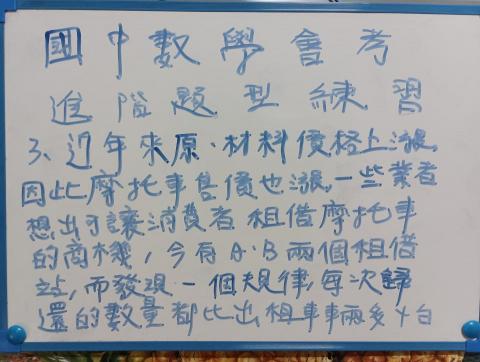 國中數學會考
進階題型練習
3、近年來原、材料價格上漲,
因此摩托車售價也漲,一些業者
想出可讓消費者租借摩托車
的商機,今有A、B兩個租借
站,而發現一個規律,每次歸
還的數量都比出租車車兩多十台